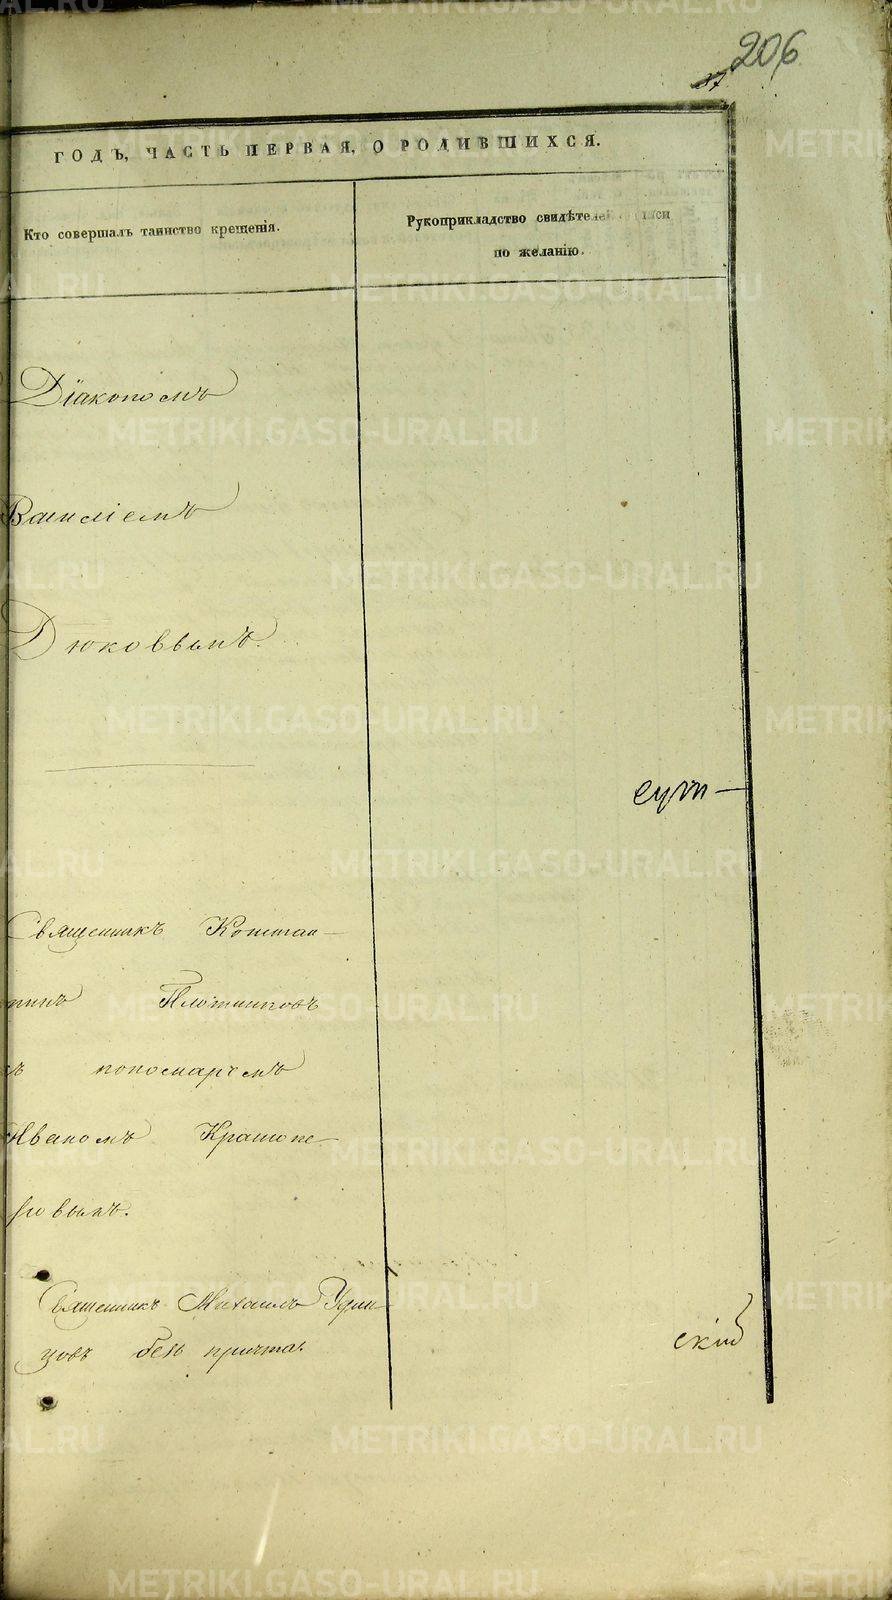 206
37
ГОДЪ, ЧАСТЬ ПЕРВАЯ, О РОДИВШИХСЯ.
Кто совершалъ таинство крещенія.
Рукоприкладство свидѣтелей
по желанію.
Діакономъ
Василіемъ
Дюковымъ.
Священникъ Констан-
тинъ Плотниковъ
съ пономаремъ
Иваномъ Краснопе-
ровымъ.
Священникъ Михаилъ Удин-
цовъ безъ причта.
скій
METRIKI.GASO-URAL.RU